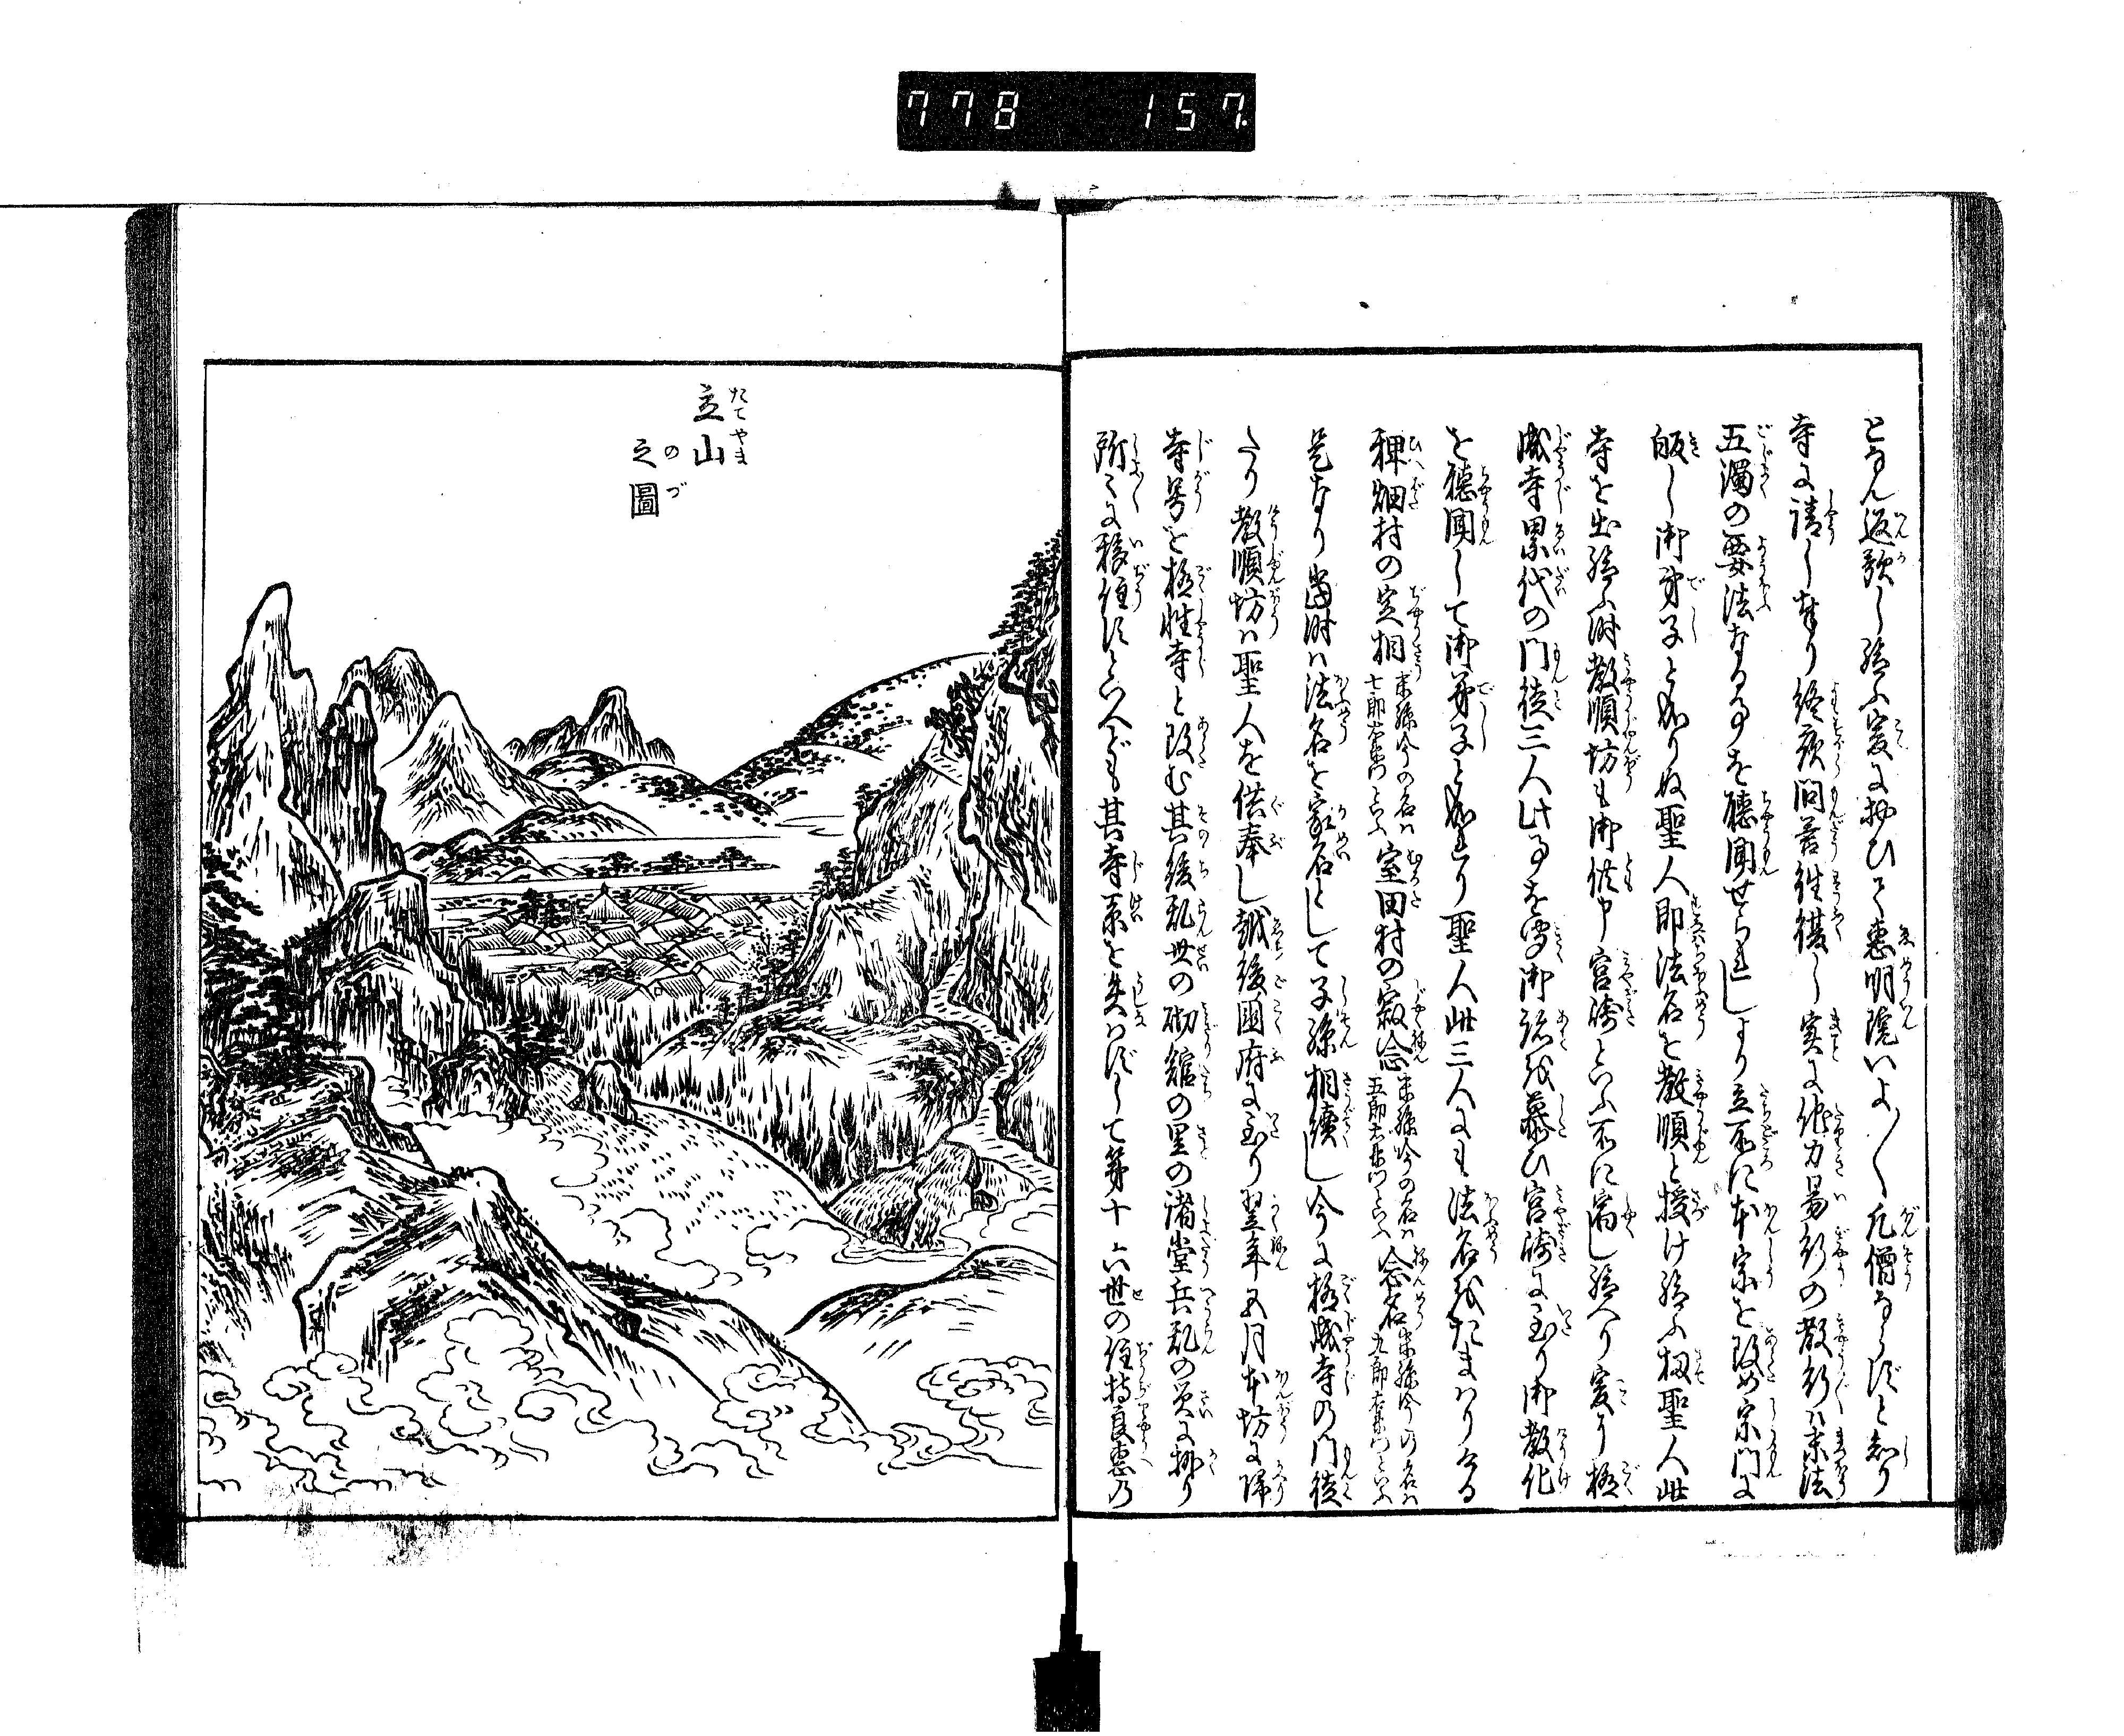 778 157.
となん返歌し給ふ爰に於ひて恵明院いよ〱凡僧ならずと知り
寺に請じ奉り終夜問答往復し実に他力易行の教行は末法
五濁の要法なる事を聴聞せられしより立所に本宗を改め宗門に
皈し御弟子と成りぬ聖人即法名を教順と授け給ふ扨聖人此
寺を出給ふ時教順坊も御供申宮崎といふ所に宿し給へり爰に極
成寺累代の門徒三人此事を聞御跡を慕ひ宮崎に到り御教化
を聴聞して御弟子と成れり聖人此三人にも法名をたまはりける
稗畑村の定相 末孫今の名は七郎右衛門といふ 室田村の寂念 末孫今の名は五郎右衛門といふ 念名 末孫今の名は九郎右衛門といふ
是なり当時は法名を家名として子孫相続し今に極成寺の門徒
たり教順坊は聖人を供奉し越後国府に到り翌年五月本坊に帰り
寺号を極性寺と改む其後乱世の砌舘の里の諸堂兵乱の災に掛り
所々に移住すといへども其寺系を失はずして第十六世の住持良恵の
立山
たてやま
之圖
のづ